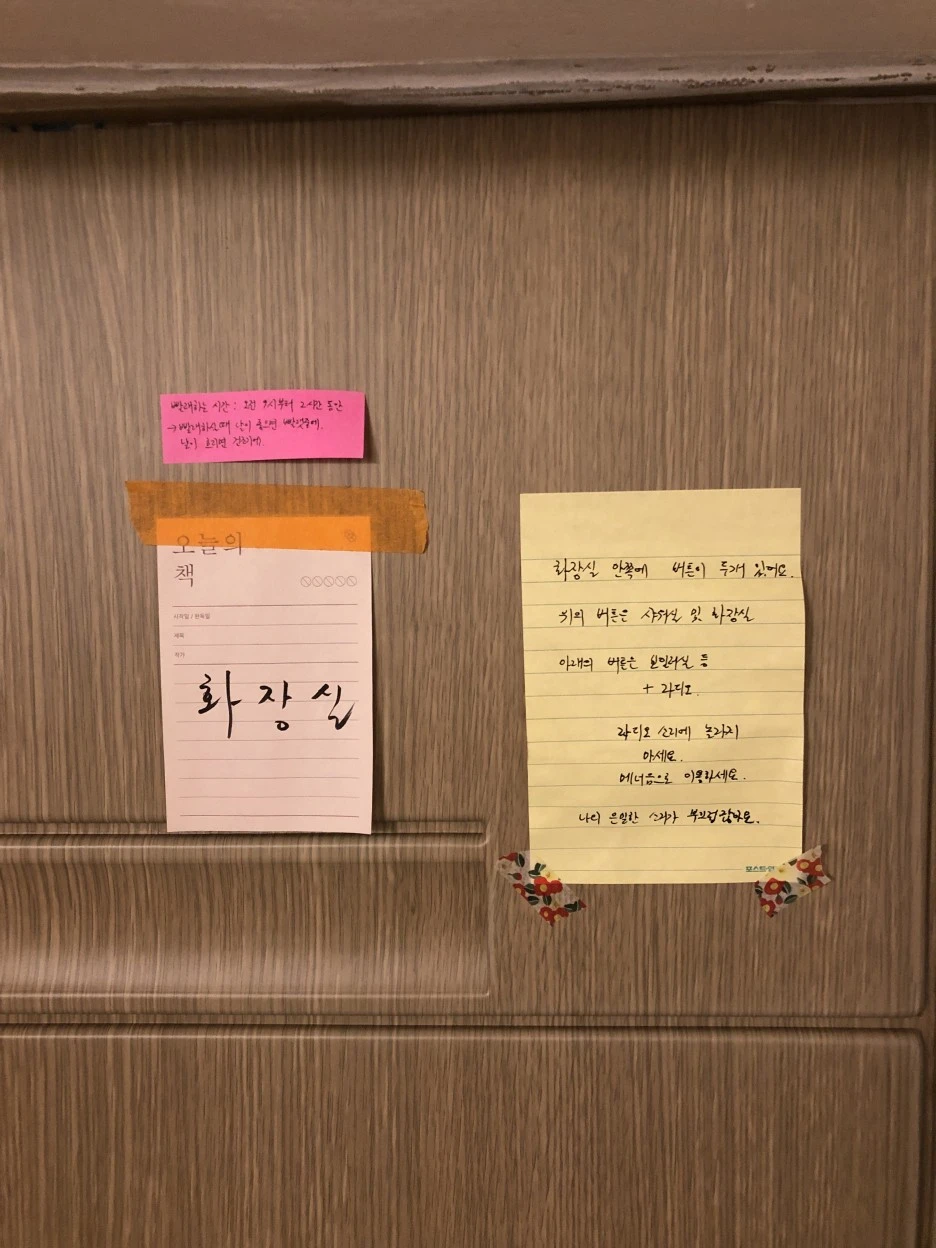 빨래하는 시간 : 오전 9시부터 2시간 동안
→ 빨래하실때 날이 좋으면 빨랫줄에,
날이 흐리면 건조기에.
오늘의
책
시작일 / 완독일
제목
작가
화장실
화장실 안쪽에 버튼이 두개 있어요.
위의 버튼은 샤워실 및 화장실
아래의 버튼은 등
+ 라디오.
라디오 소리에 놀라지
마세요.
매너음으로 이용하세요.
나의 은밀한 소리가 부끄럽잖아요.
포스트잇